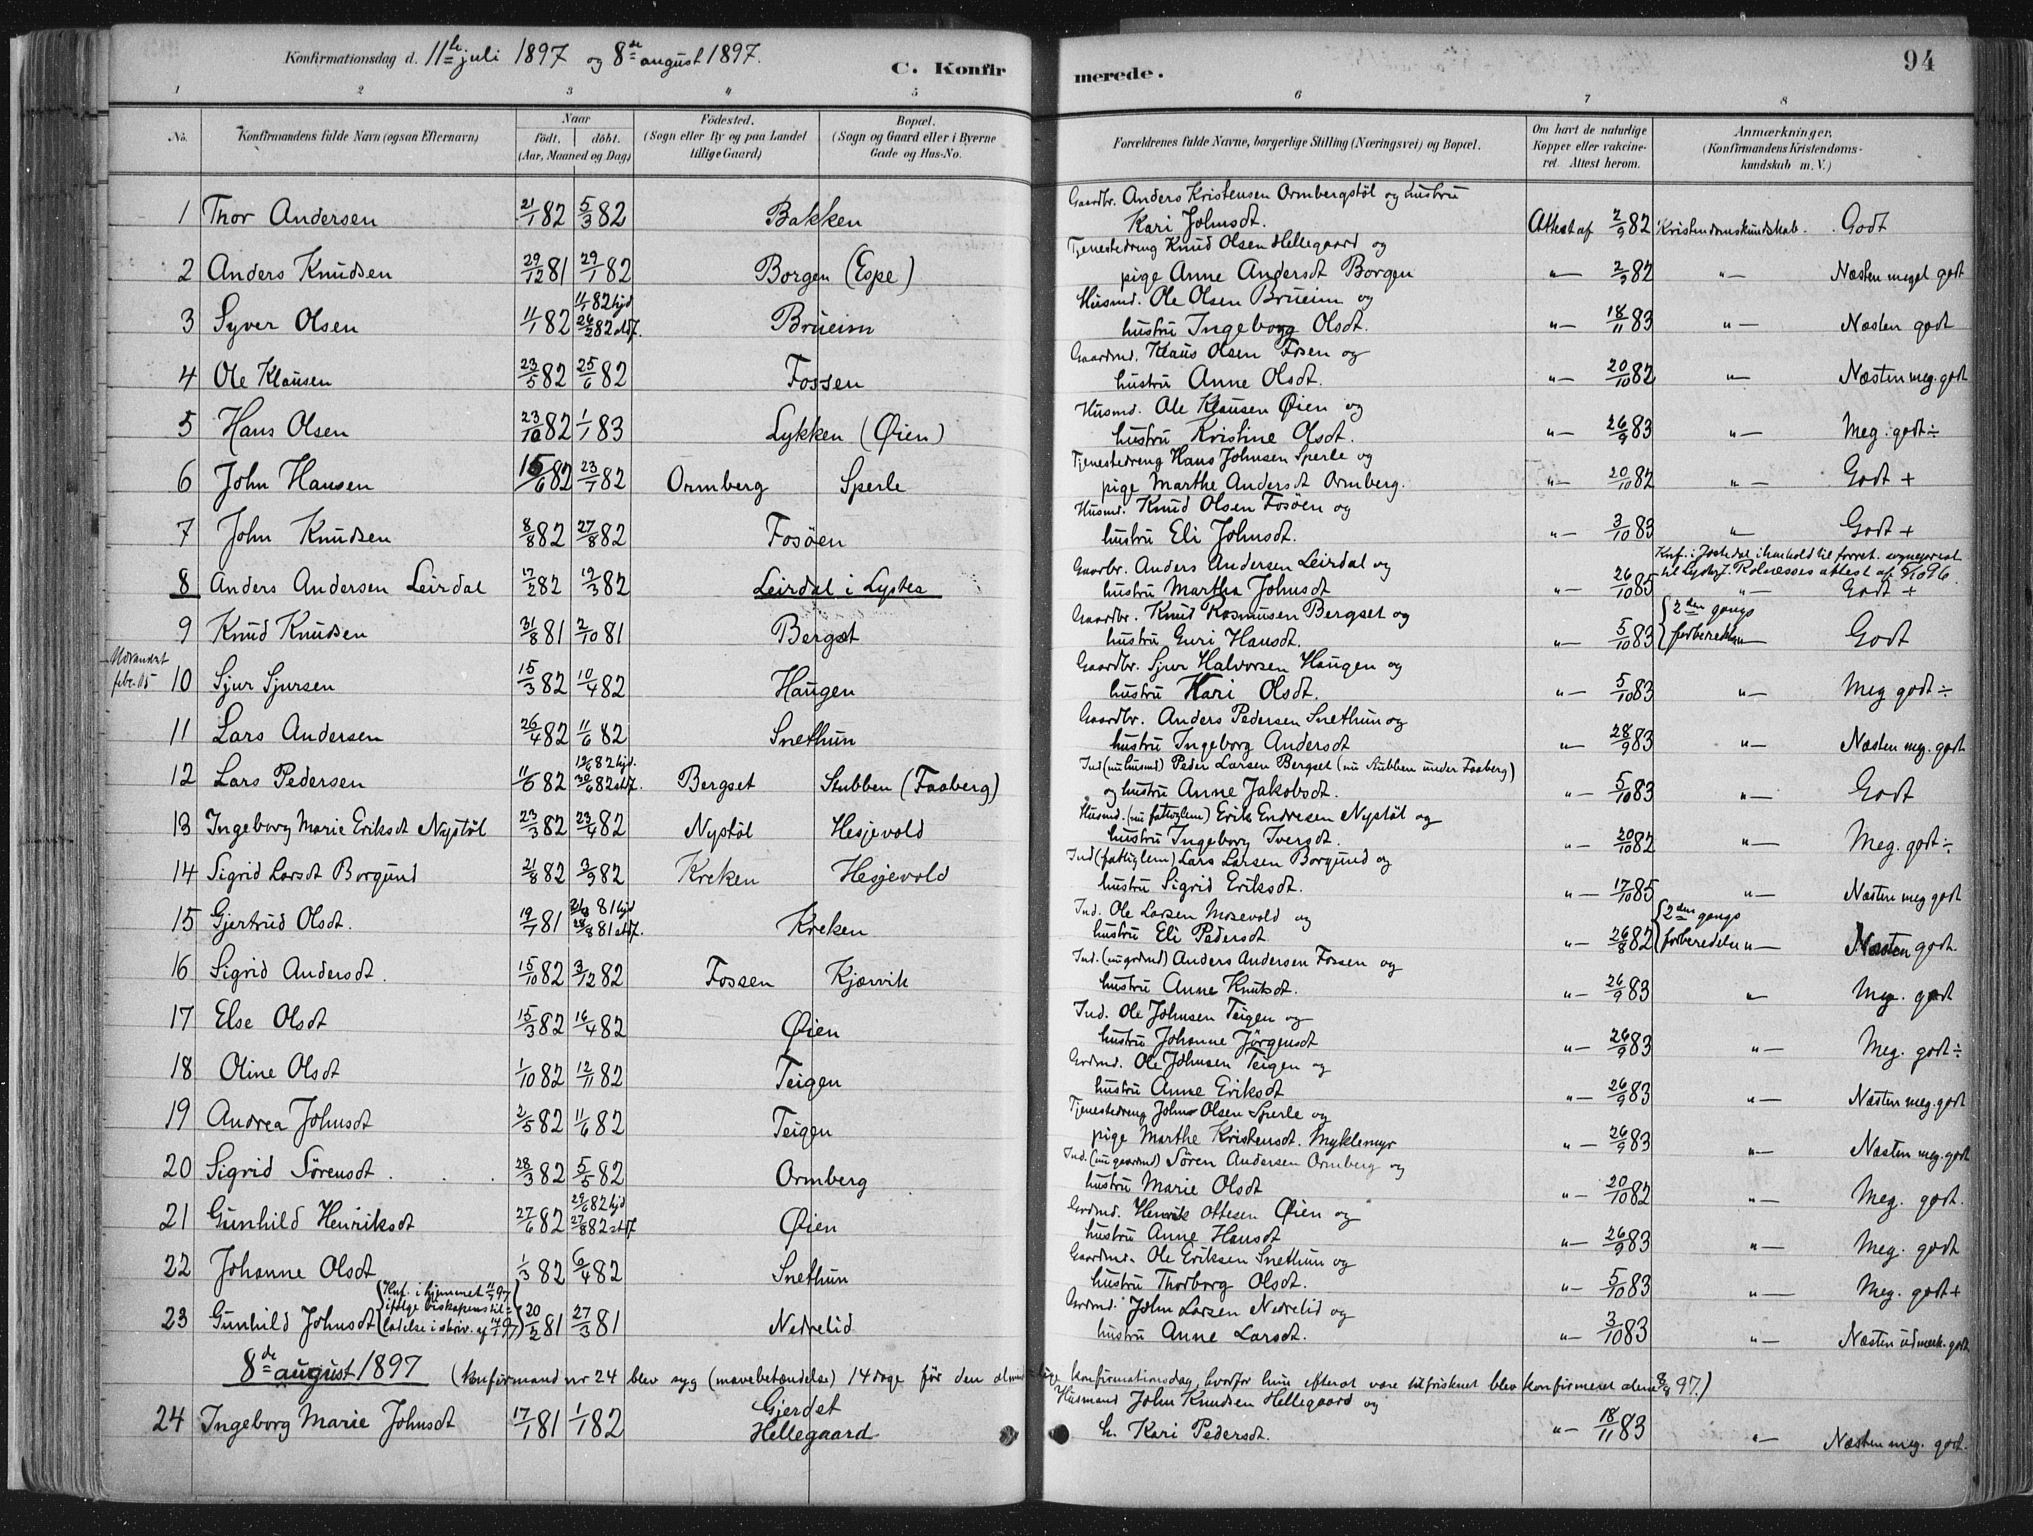 Konfirmationsdag d. 11te juli 1897 og 8de august 1897.
C. Konfirmerede.
94
1 2 3 4 5 6 7 8
No. Konfirmandens fulde Navn (ogsaa Efternavn) Naar født. døbt. (Aar, Maaned og Dag) Fødested. (Sogn eller By og paa Landet tillige Gaard) Bopæl. (Sogn og Gaard eller i Byerne Gade og Hus-No. Forældrenes fulde Navne, borgerlige Stilling (Næringsvei) og Bopæl. Om havt de naturlige Kopper eller vakcineret. Attest herom. Anmærkninger. (Konfirmandens Kristendomskundskab m. V.)
1 Thor Andersen 21/1 82 5/3 82 Bakken Gaardbr. Anders Kristensen Ormbergstøl og hustru
Kari Johnsdt. Attest af 2/9 82 Kristendomskundskab. Godt
2 Anders Knudsen 29/12 81 29/1 82 Borgen (Espe) Tjenestedreng Knud Olsen Hellegaard og
pige Anne Andersdt Borgen „— 2/9 82 „— Næsten meget godt
3 Syver Olsen 11/1 82 11/1 82 hjd 26/2 82 stdf. Brüeim Husmd. Ole Olsen Brüeim og
hustru Ingeborg Olsdt. „— 18/11 83 „— Næsten godt
4 Ole Klausen 23/5 82 25/6 82 Fossen Gaardmd. Klaus Olsen Fosen og
hustru Anne Olsdt. „— 20/10 82 „— Næsten meg. godt
5 Hans Olsen 23/10 82 1/1 83 Lykken (Øien) Husmd. Ole Klausen Øien og
hustru Kristine Olsdt. „— 26/9 83 „— Meg. godt ÷
6 John Hansen 15/6 82 23/7 82 Ormberg Sperle Tjenestedreng Hans Johnsen Sperle og
pige Marthe Andersdt Ormberg. „— 20/10 82 „— Godt +
7 John Knudsen 8/8 82 27/8 82 Fosøen Husmd. Knud Olsen Fosøen og
hustru Eli Johnsdt. „— 3/10 83 „— Godt +
8 Anders Andersen Leirdal 17/2 82 19/3 82 Leirdal i Lyster Gaardbr. Anders Andersen Leirdal og
Knf. i Jostedal i henhold til forret. sognepræst
til Lyster J. Rolnesses attest af 96.
hustru Martha Johnsdt „— 26/10 85 „— Godt +
9 Knud Knudsen 31/8 81 2/10 81 Bergset Gaardbr. Knud Rasmusen Bergset og
hustru Guri Hansdt. „— 5/10 83 {2den gangs forberedelse „— Godt
Udvandret febr. 05
10 Sjur Sjursen 15/3 82 10/4 82 Haugen Gaardbr. Sjur Halvorsen Haugen og
hustru Kari Olsdt. „— 5/10 83 „— Meg godt ÷
11 Lars Andersen 26/4 82 11/6 82 Snethun Gaardbr. Anders Pedersen Snethun og
hustru Ingeborg Andersdt „— 28/9 83 „— Næsten meg. godt
12 Lars Pedersen 11/5 82 19/6 82 hjd. 30/6 82 stdf. Bergset Stubben (Faaberg) Ind (nu husmd) Peder Larsen Bergset (nu Stubben under Faaberg)
og hustru Anne Jakobsdt. „— 5/10 83 „— Godt
13 Ingeborg Marie Eriksdt Nystøl 23/3 82 23/4 82 Nystøl Hesjevold Husmd. (nu fattiglem) Erik Endresen Nystøl og
hustru Ingeborg Iversdt. „— 20/10 82 „— Meg. godt ÷
14 Sigrid Larsdt Borgund 21/8 82 3/9 82 Kreken Hesjevold Ind (fattiglem) Lars Larsen Borgund og
hustru Sigrid Eriksdt. „— 17/10 85 „— Næsten meg godt
15 Gjertrud Olsdt. 19/7 81 81 hjd 28/8 81 stdf. Kreken Ind. Ole Larsen Mosevold og
hustru Eli Pedersdt „— 26/8 82 {2den gangs forberedelse „— Næsten godt.
16 Sigrid Andersdt. 15/10 82 3/12 82 Fossen Kjærvik Ind. (nu grdmd) Anders Andersen Fossen og
hustru Anne Knutsdt. „— 26/9 83 „— Meg. godt
17 Else Olsdt 15/3 82 16/4 82 Øien Ind. Ole Johnsen Teigen og
hustru Johanne Jørgensdt „— 26/9 83 „— Meg. godt ÷
18 Oline Olsdt 1/10 82 12/11 82 Teigen Grdmd. Ole Johnsen Teigen og
hustru Anne Eriksdt „— 26/9 83 „— Næsten meg. godt
19 Andrea Johnsdt 2/5 82 11/6 82 Teigen Tjenestedreng John Olsen Sperle og
pige Marthe Kristensdt. Myklemyr „— 26/9 83 „— Næsten meg. godt
20 Sigrid Sørensdt 28/3 82 5/5 82 Ormberg Ind. (nu gaardmd) Søren Andersen Ormberg og
hustru Marie Olsdt „— 20/10 82 „— Meg. godt.
21 Gunhild Henriksdt 27/6 82 29/6 82 hjd 27/8 82 stdf. Øien Grdmd. Henrik Ottesen Øien og
hustru Anne Hansdt „— 26/9 83 „— Meg. godt
22 Johanne Olsdt 1/3 82 6/4 82 Snethun Gaardmd. Ole Eriksen Snethun og
hustru Thorborg Olsdt. „— 5/10 83 „— Meg. godt +
23 Gunhild Johnsdt (Knf. i hjemmet 11/7 97 ifølge biskopens tilladelse i skriv. af 14/7 97) 20/2 81 27/3 81 Nedrelid Grdmd. John Larsen Nedrelid og
hustru Anne Larsdt. „— 3/10 83 „— Næsten udmerk. godt
8de august 1897 (konfirmand nr 24 blev syg (mavebetændelse) 14 dage før den almindelige konfirmationsdag, hvorfor hun efterat være tilfrisknet blev konfirmeret alene 8/8 97.)
24 Ingeborg Marie Johnsdt 17/1 81 1/1 82 Gjerdet Hellegaard Husmand John Knudsen Hellegaard og
h. Kari Pedersdt. „— 18/11 83 „— Næsten meg. godt.